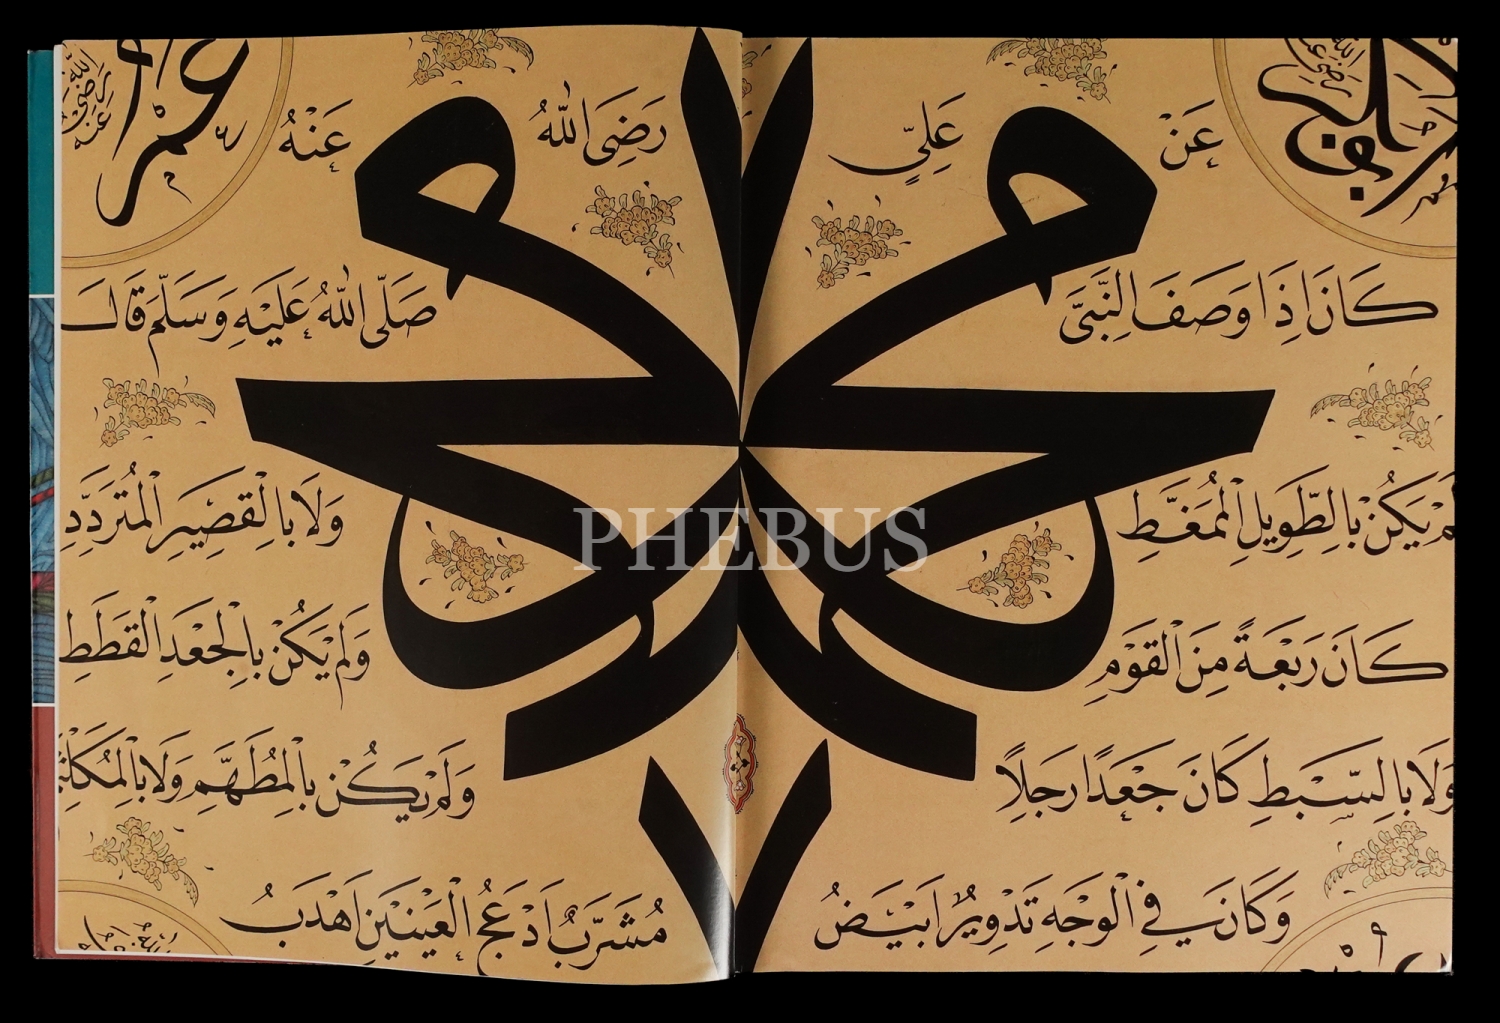 عمر رضي الله عنه
عَنْ عَلِيٍّ رَضِيَ اللّٰهُ عَنْهُ
كَانَ اِذَا وَصَفَ النَّبِيَّ صَلَّى اللّٰهُ عَلَيْهِ وَسَلَّمَ قَالَ
لَمْ يَكُنْ بِالطَّوِيلِ الْمُمَغَّطِ وَلَا بِالْقَصِيرِ الْمُتَرَدِّدِ
كَانَ رَبْعَةً مِنَ الْقَوْمِ وَلَمْ يَكُنْ بِالْجَعْدِ الْقَطَطِ
وَلَا بِالسَّبْطِ كَانَ جَعْدًا رَجِلًا وَلَمْ يَكُنْ بِالْمُطَهَّمِ وَلَا بِالْمُكَلْثَمِ
وَكَانَ فِي الْوَجْهِ تَدْوِيرٌ اَبْيَضُ مُشَرَّبٌ اَدْعَجُ الْعَيْنَيْنِ اَهْدَبُ
محمد
PHEBUS